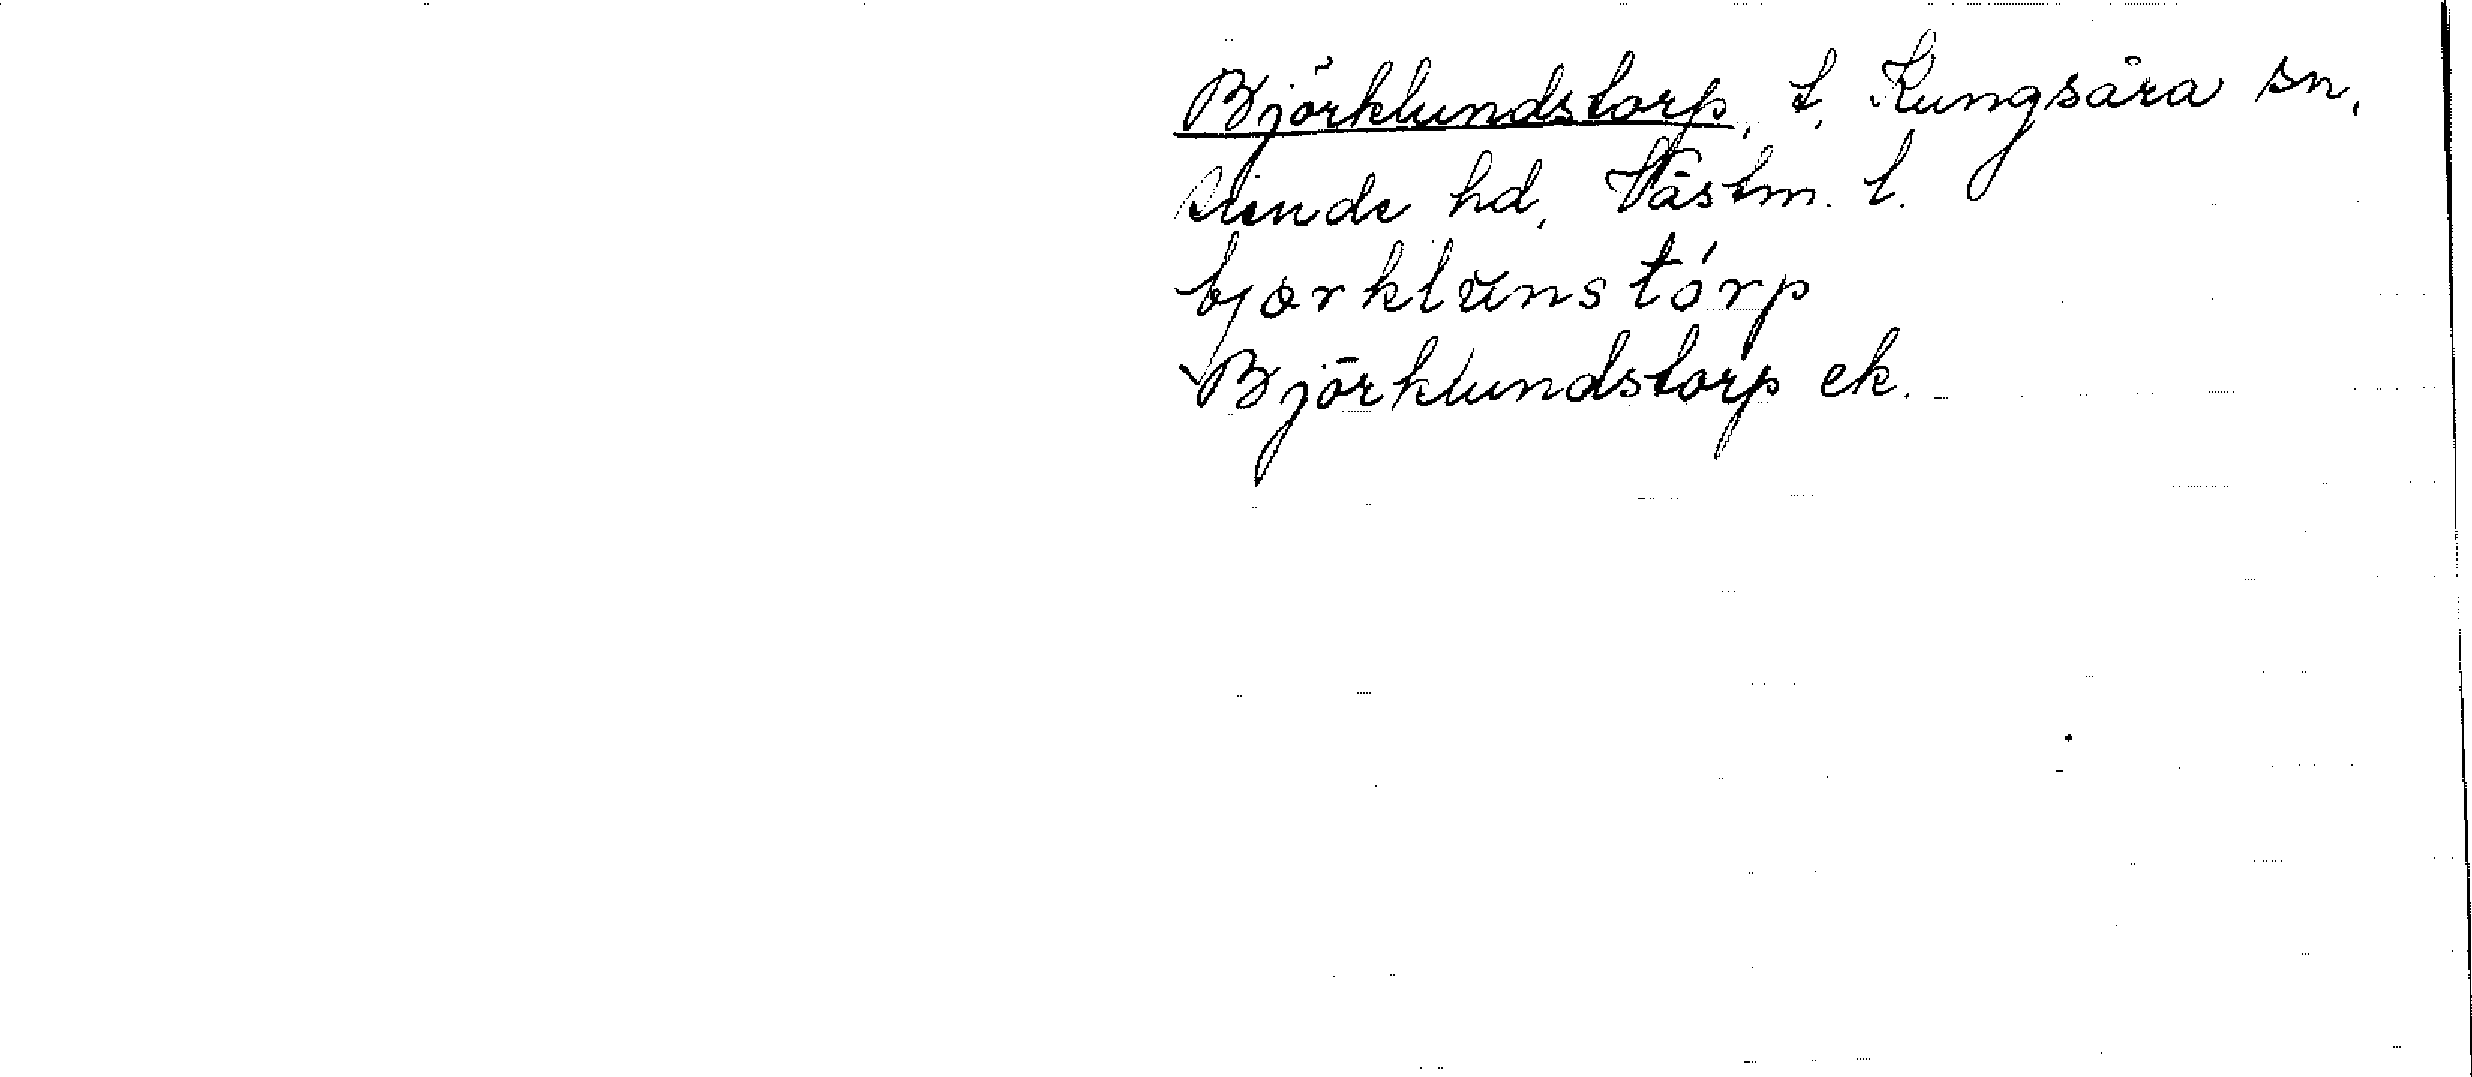 Björklundstorp, t, Kungsåra sn,
Siende hd, Västm. l.
bjorklunstórp
Björklundstorp ek.